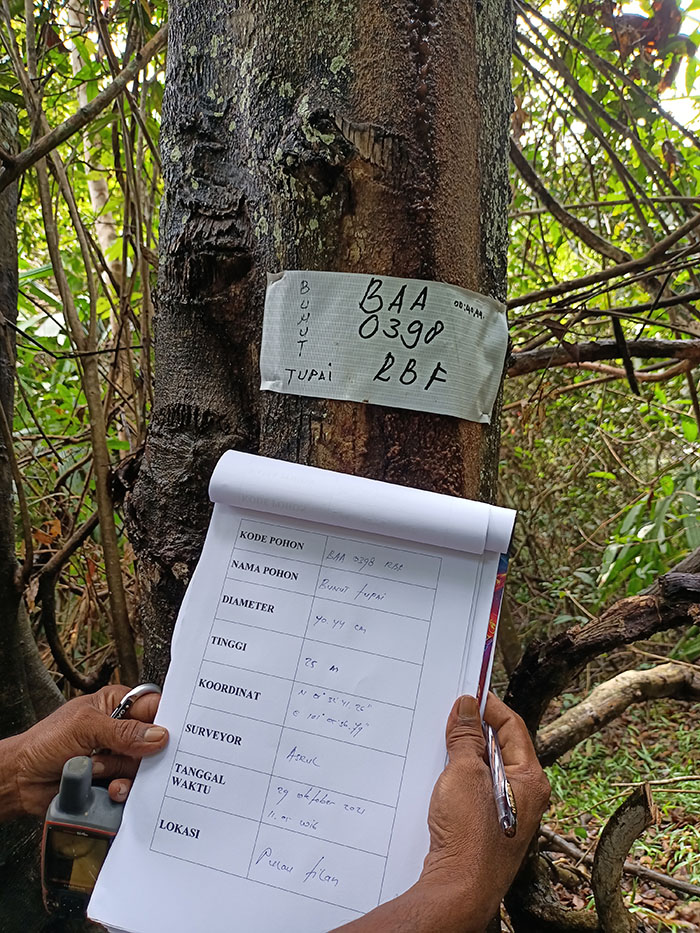 BUNUT
TUPAI
BAA
0398
RBF
KODE POHON BAA 0398 RBF
NAMA POHON Bunut tupai
DIAMETER 40.44 cm
TINGGI 25 m
KOORDINAT
SURVEYOR Asrul
TANGGAL WAKTU 29 oktober 2021
11.05 wib
LOKASI Pulau